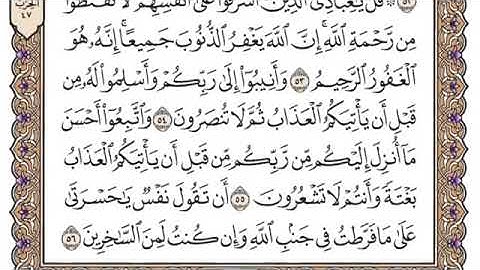 ۞ قُلْ يَٰعِبَادِيَ ٱلَّذِينَ أَسْرَفُوا۟ عَلَىٰٓ أَنفُسِهِمْ لَا تَقْنَطُوا۟
مِن رَّحْمَةِ ٱللَّهِ ۚ إِنَّ ٱللَّهَ يَغْفِرُ ٱلذُّنُوبَ جَمِيعًا ۚ إِنَّهُۥ هُوَ
ٱلْغَفُورُ ٱلرَّحِيمُ ٥٣ وَأَنِيبُوٓا۟ إِلَىٰ رَبِّكُمْ وَأَسْلِمُوا۟ لَهُۥ مِن
قَبْلِ أَن يَأْتِيَكُمُ ٱلْعَذَابُ ثُمَّ لَا تُنصَرُونَ ٥٤ وَٱتَّبِعُوٓا۟ أَحْسَنَ
مَآ أُنزِلَ إِلَيْكُم مِّن رَّبِّكُم مِّن قَبْلِ أَن يَأْتِيَكُمُ ٱلْعَذَابُ
بَغْتَةً وَأَنتُمْ لَا تَشْعُرُونَ ٥٥ أَن تَقُولَ نَفْسٌ يَٰحَسْرَتَىٰ
عَلَىٰ مَا فَرَّطتُ فِى جَنۢبِ ٱللَّهِ وَإِن كُنتُ لَمِنَ ٱلسَّٰخِرِينَ ٥٦
الحزب
٤٧